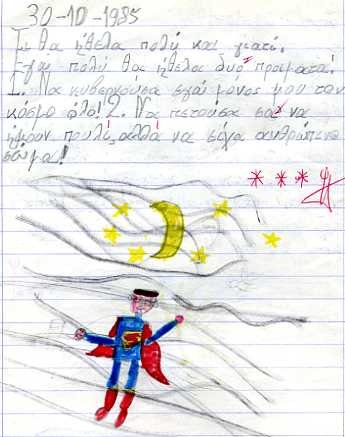 30-10-1985
Τι θα ήθελα πολύ και γιατί.
Εγώ πολύ θα ήθελα δυό πράματα!
1. Να κυβερνούσα εγώ μόνος μου τον
κόσμο όλο! 2. Να πετούσα σα να
ήμουν πουλί, αλλά να είχα ανθρώπινο
σώμα!